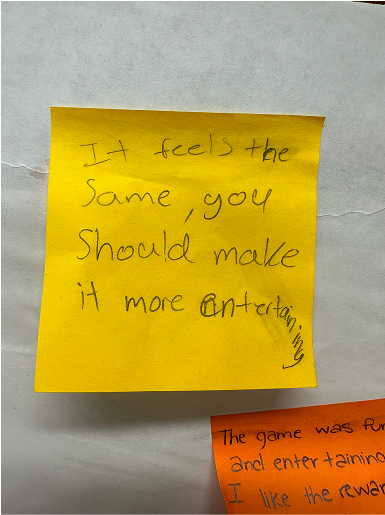 It feels the
Same, you
Should make
it more entertaining
The game was fun
and entertaining
I like the rewar